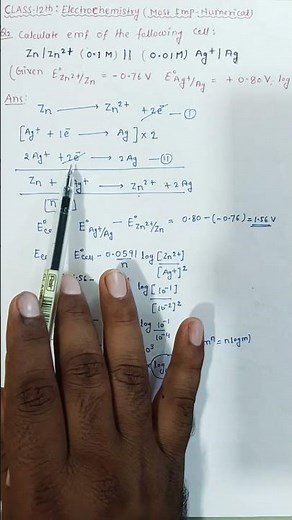 CLASS-12th: Electrochemistry (Most Imp. Numerical)
Q. Calculate emf of the following cell:
Zn | Zn²⁺ (0.1 M) || (0.01 M) Ag⁺ | Ag
(Given E°Zn²⁺/Zn = -0.76 V E°Ag⁺/Ag = + 0.80 V, log
Ans:
Zn ⟶ Zn²⁺ + 2e⁻ — (I)
[Ag⁺ + 1e⁻ ⟶ Ag] × 2
2Ag⁺ + 2e⁻ ⟶ 2Ag — (II)
Zn + Ag⁺ ⟶ Zn²⁺ + 2Ag
E°Ag⁺/Ag - E°Zn²⁺/Zn = 0.80 - (-0.76) = 1.56 V
E°cell - 0.0591/n log [Zn²⁺]/[Ag⁺]²
log [10⁻¹]/[10⁻²]²
log 10⁻¹/10⁻⁴
= n log m)